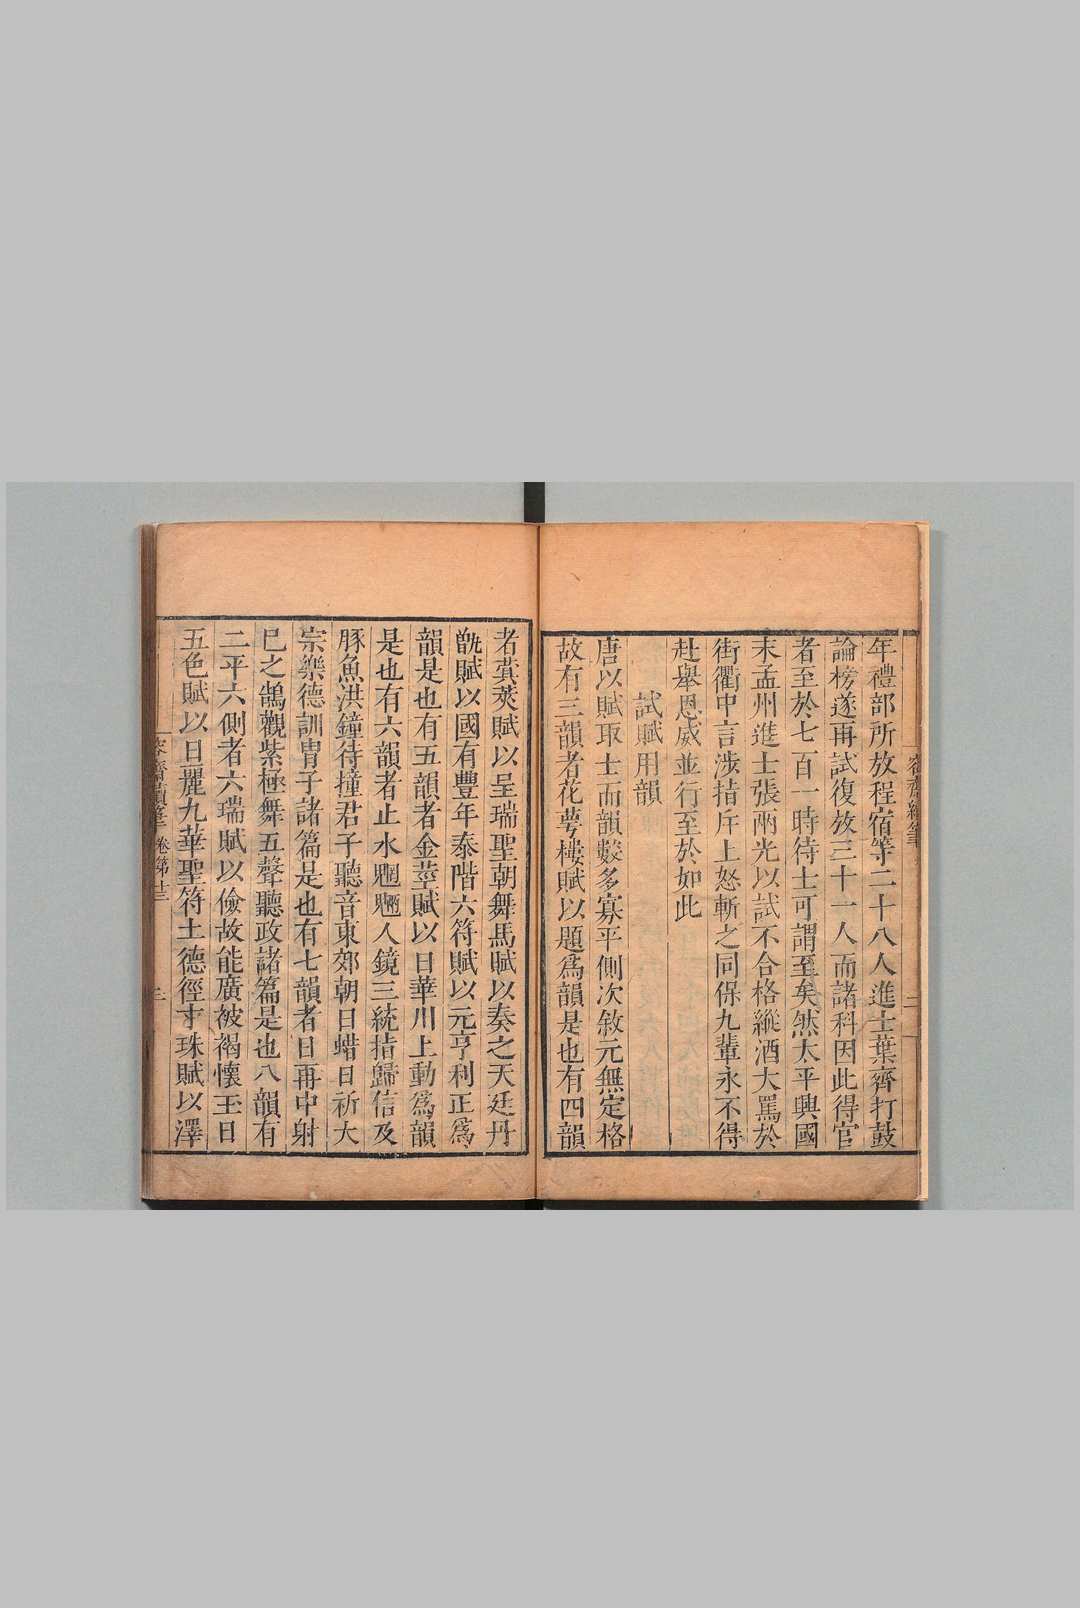 年禮部所放程宿等二十八人進士葉齊打鼓
論榜遂再試復放三十一人而諸科因此得官
者至於七百一時待士可謂至矣然太平興國
末孟州進士張兩光以試不合格縱酒大罵於
街衢中言涉指斥上怒斬之同保九輩永不得
赴舉恩威並行至於如此
試賦用韻
唐以賦取士而韻數多寡平側次敘元無定格
故有三韻者花萼樓賦以題爲韻是也有四韻
者蓂莢賦以呈瑞聖朝舞馬賦以奏之天廷丹
甑賦以國有豐年泰階六符賦以元亨利正爲
韻是也有五韻者金莖賦以日華川上動爲韻
是也有六韻者止水魍魎人鏡三統指歸信及
豚魚洪鐘待撞君子聽音東郊朝日蜡日祈天
宗樂德訓胄子諸篇是也有七韻者日再中射
巳之鵠觀紫極舞五聲聽政諸篇是也八韻有
二平六側者六瑞賦以儉故能廣被褐懷玉日
五色賦以日麗九華聖符土德徑寸珠賦以澤
容齋續筆 卷第十三 三